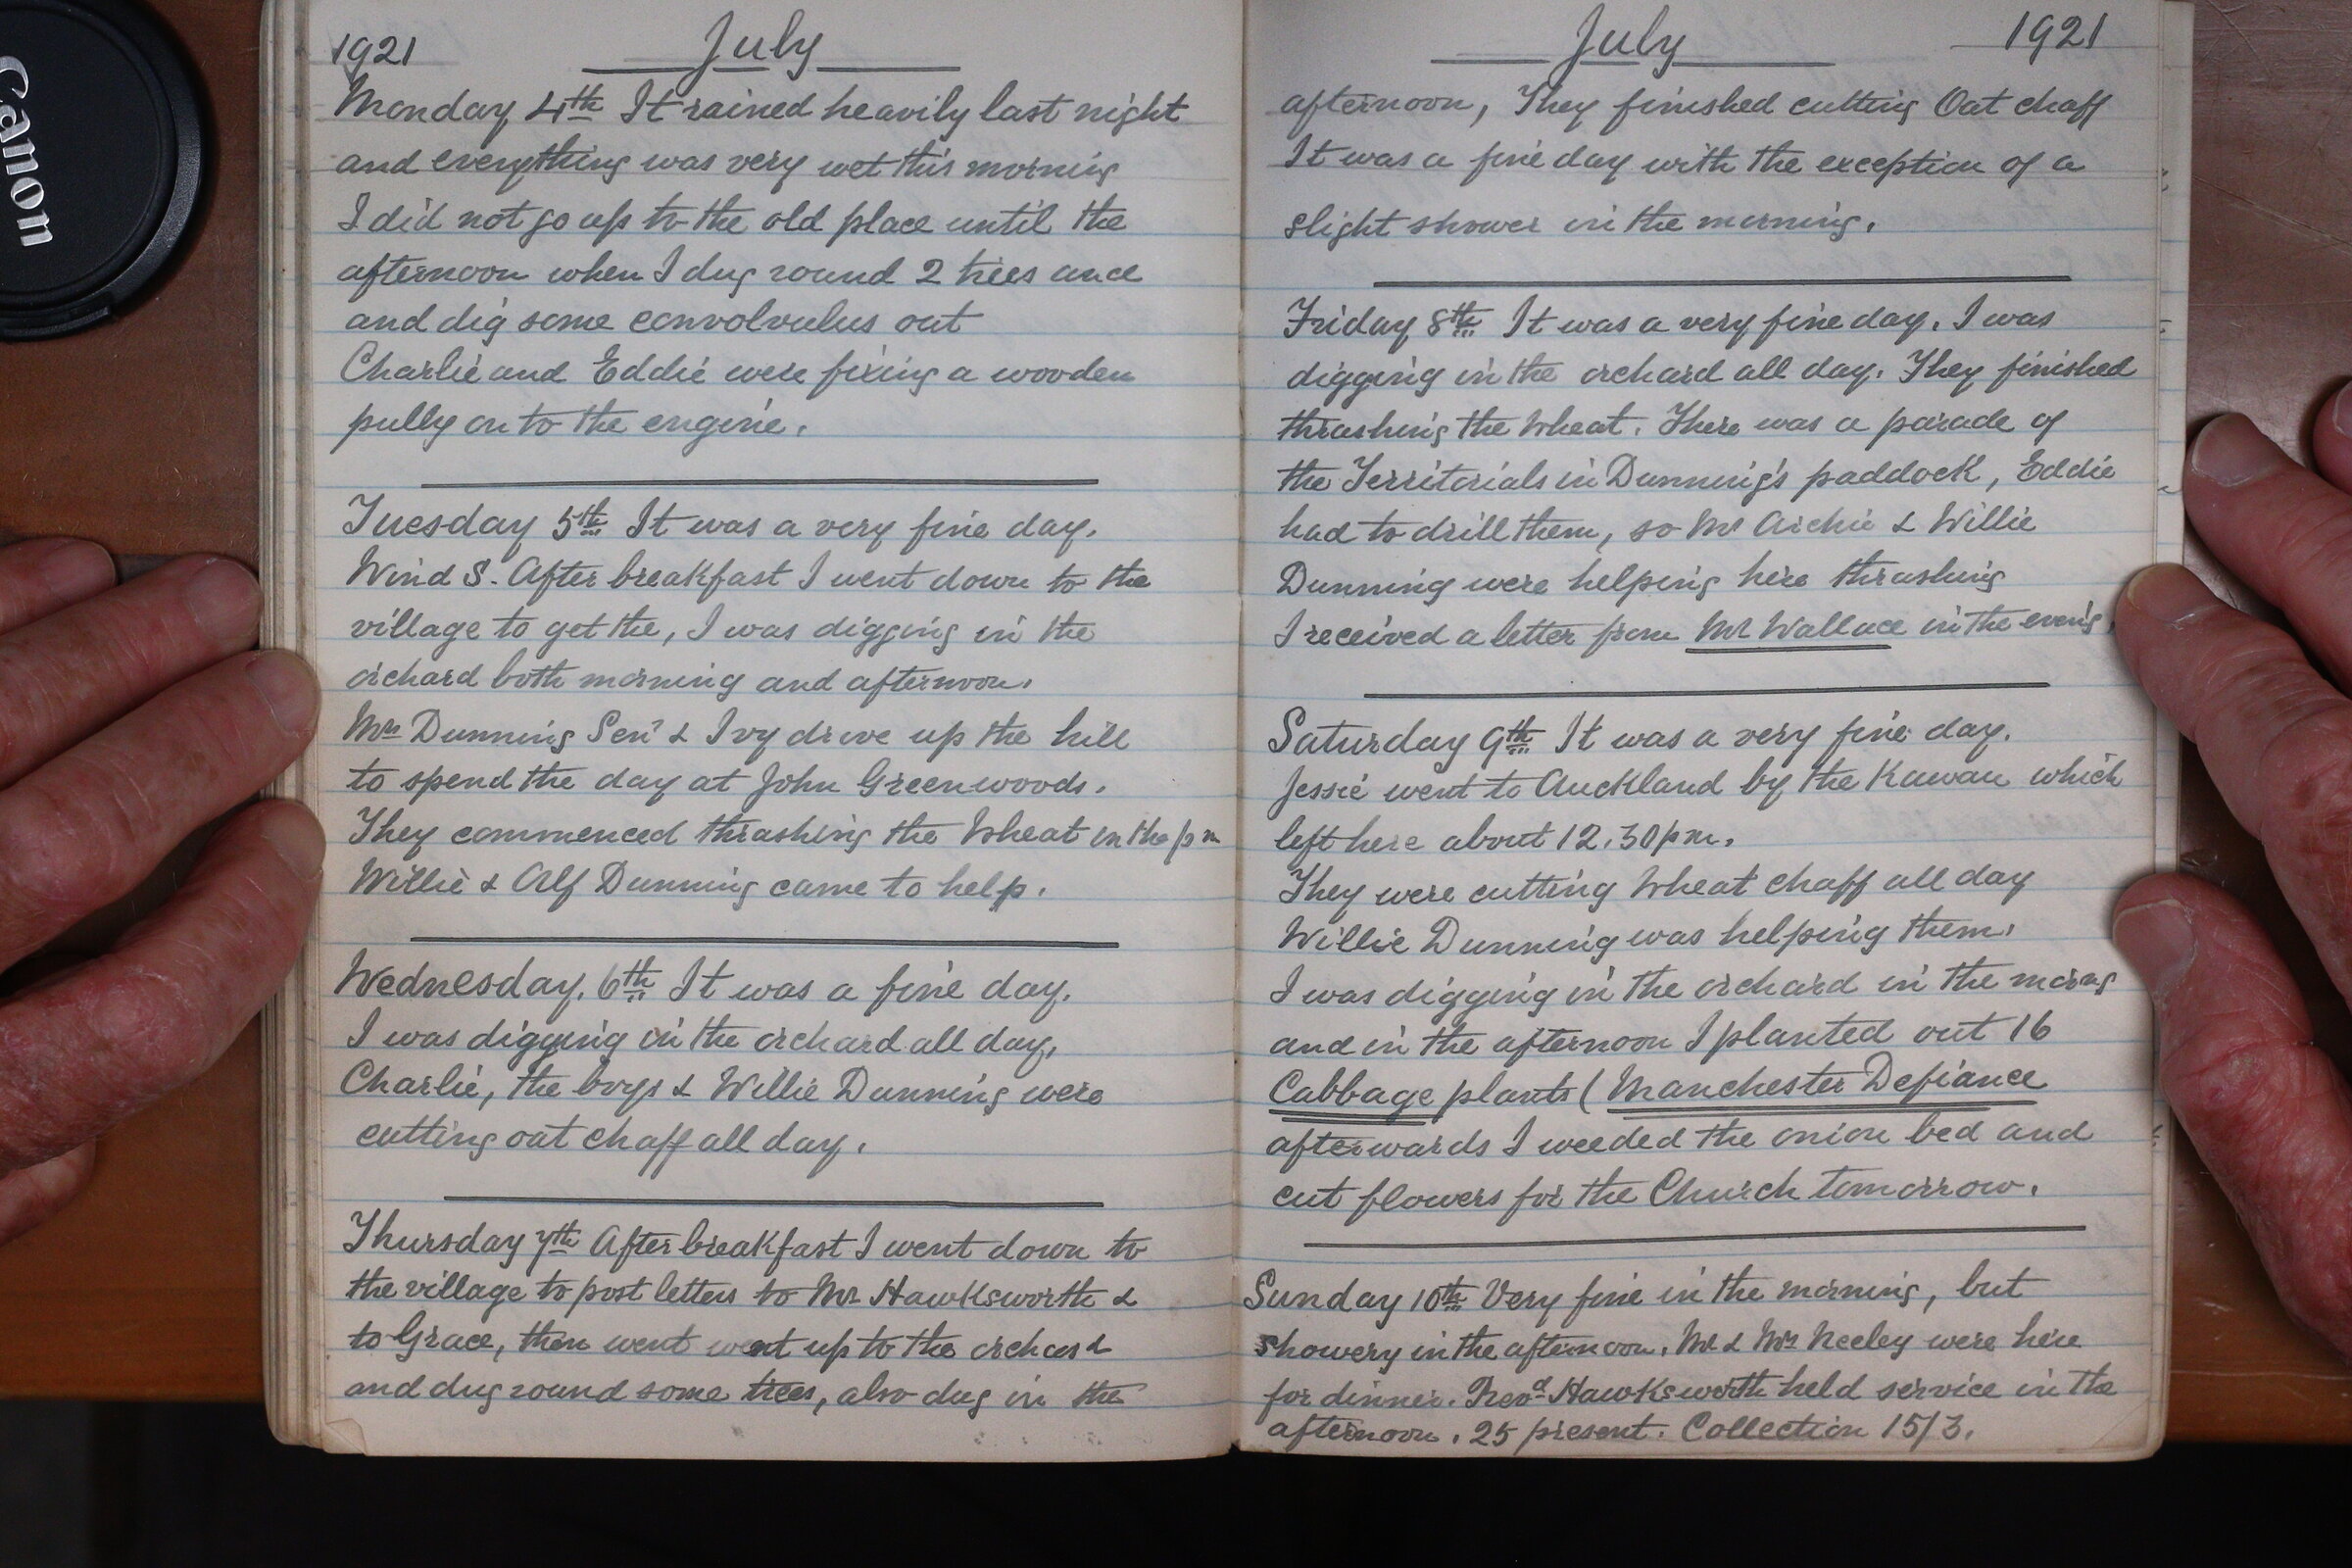 Canon
1921 July
Monday 4th It rained heavily last night
and everything was very wet this morning
I did not go up to the old place until the
afternoon when I dug round 2 trees and
and dig some convolvulus out
Charlie and Eddie were fixing a wooden
pully on to the engine.
Tuesday 5th It was a very fine day.
Wind S. After breakfast I went down to the
village to get the, I was digging in the
orchard both morning and afternoon.
Mrs Dunning Senr & Ivy drove up the hill
to spend the day at John Greenwoods.
They commenced thrashing the Wheat in the pm
Willie & Alf Dunning came to help.
Wednesday. 6th It was a fine day.
I was digging in the orchard all day,
Charlie, the boys & Willie Dunning were
cutting oat chaff all day.
Thursday 7th After breakfast I went down to
the village to post letters to Mr Hawksworth &
to Grace, then went went up to the orchard
and dug round some trees, also dug in the
July 1921
afternoon, They finished cutting Oat chaff
It was a fine day with the exception of a
slight shower in the morning.
Friday 8th It was a very fine day. I was
digging in the orchard all day. They finished
thrashing the Wheat. There was a parade of
the Territorials in Dunning's paddock, Eddie
had to drill them, so Mr Archie & Willie
Dunning were helping here thrashing
I received a letter from Mr Wallace in the eveng,
Saturday 9th It was a very fine day.
Jessie went to Auckland by the Kawau which
left here about 12.30 pm.
They were cutting Wheat chaff all day
Willie Dunning was helping them.
I was digging in the orchard in the morng
and in the afternoon I planted out 16
Cabbage plants (Manchester Defiance
afterwards I weeded the onion bed and
cut flowers for the Church tomorrow.
Sunday 10th Very fine in the morning, but
showery in the afternoon. Mr & Mrs Neeley were here
for dinner. Revd Hawksworth held service in the
afternoon. 25 present. Collection 15/3.